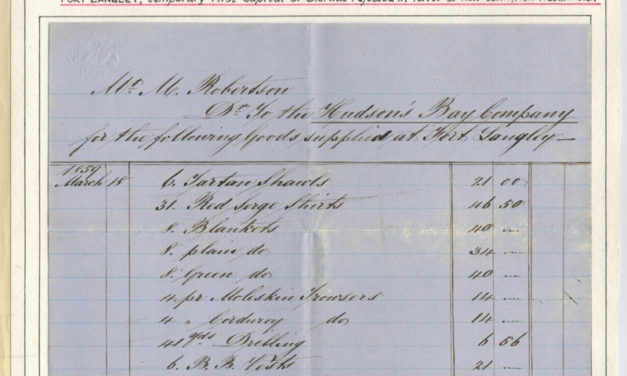 FORT LANGLEY, temporary first capital of
Mr. M. Robertson
Dr. To the Hudson's Bay Company
for the following Goods supplied at Fort Langley—
1859
March 18 6. Tartan Shawls 21 00
31. Red Serge Shirts 46 50
8. Blankets 40 —
8. plain do 34 —
8. Green do 40 —
4 pr Moleskin Trowsers 14 —
4 " Corduroy do 14 —
41 yds Drilling 6 56
6. B. B. Vests 21 —